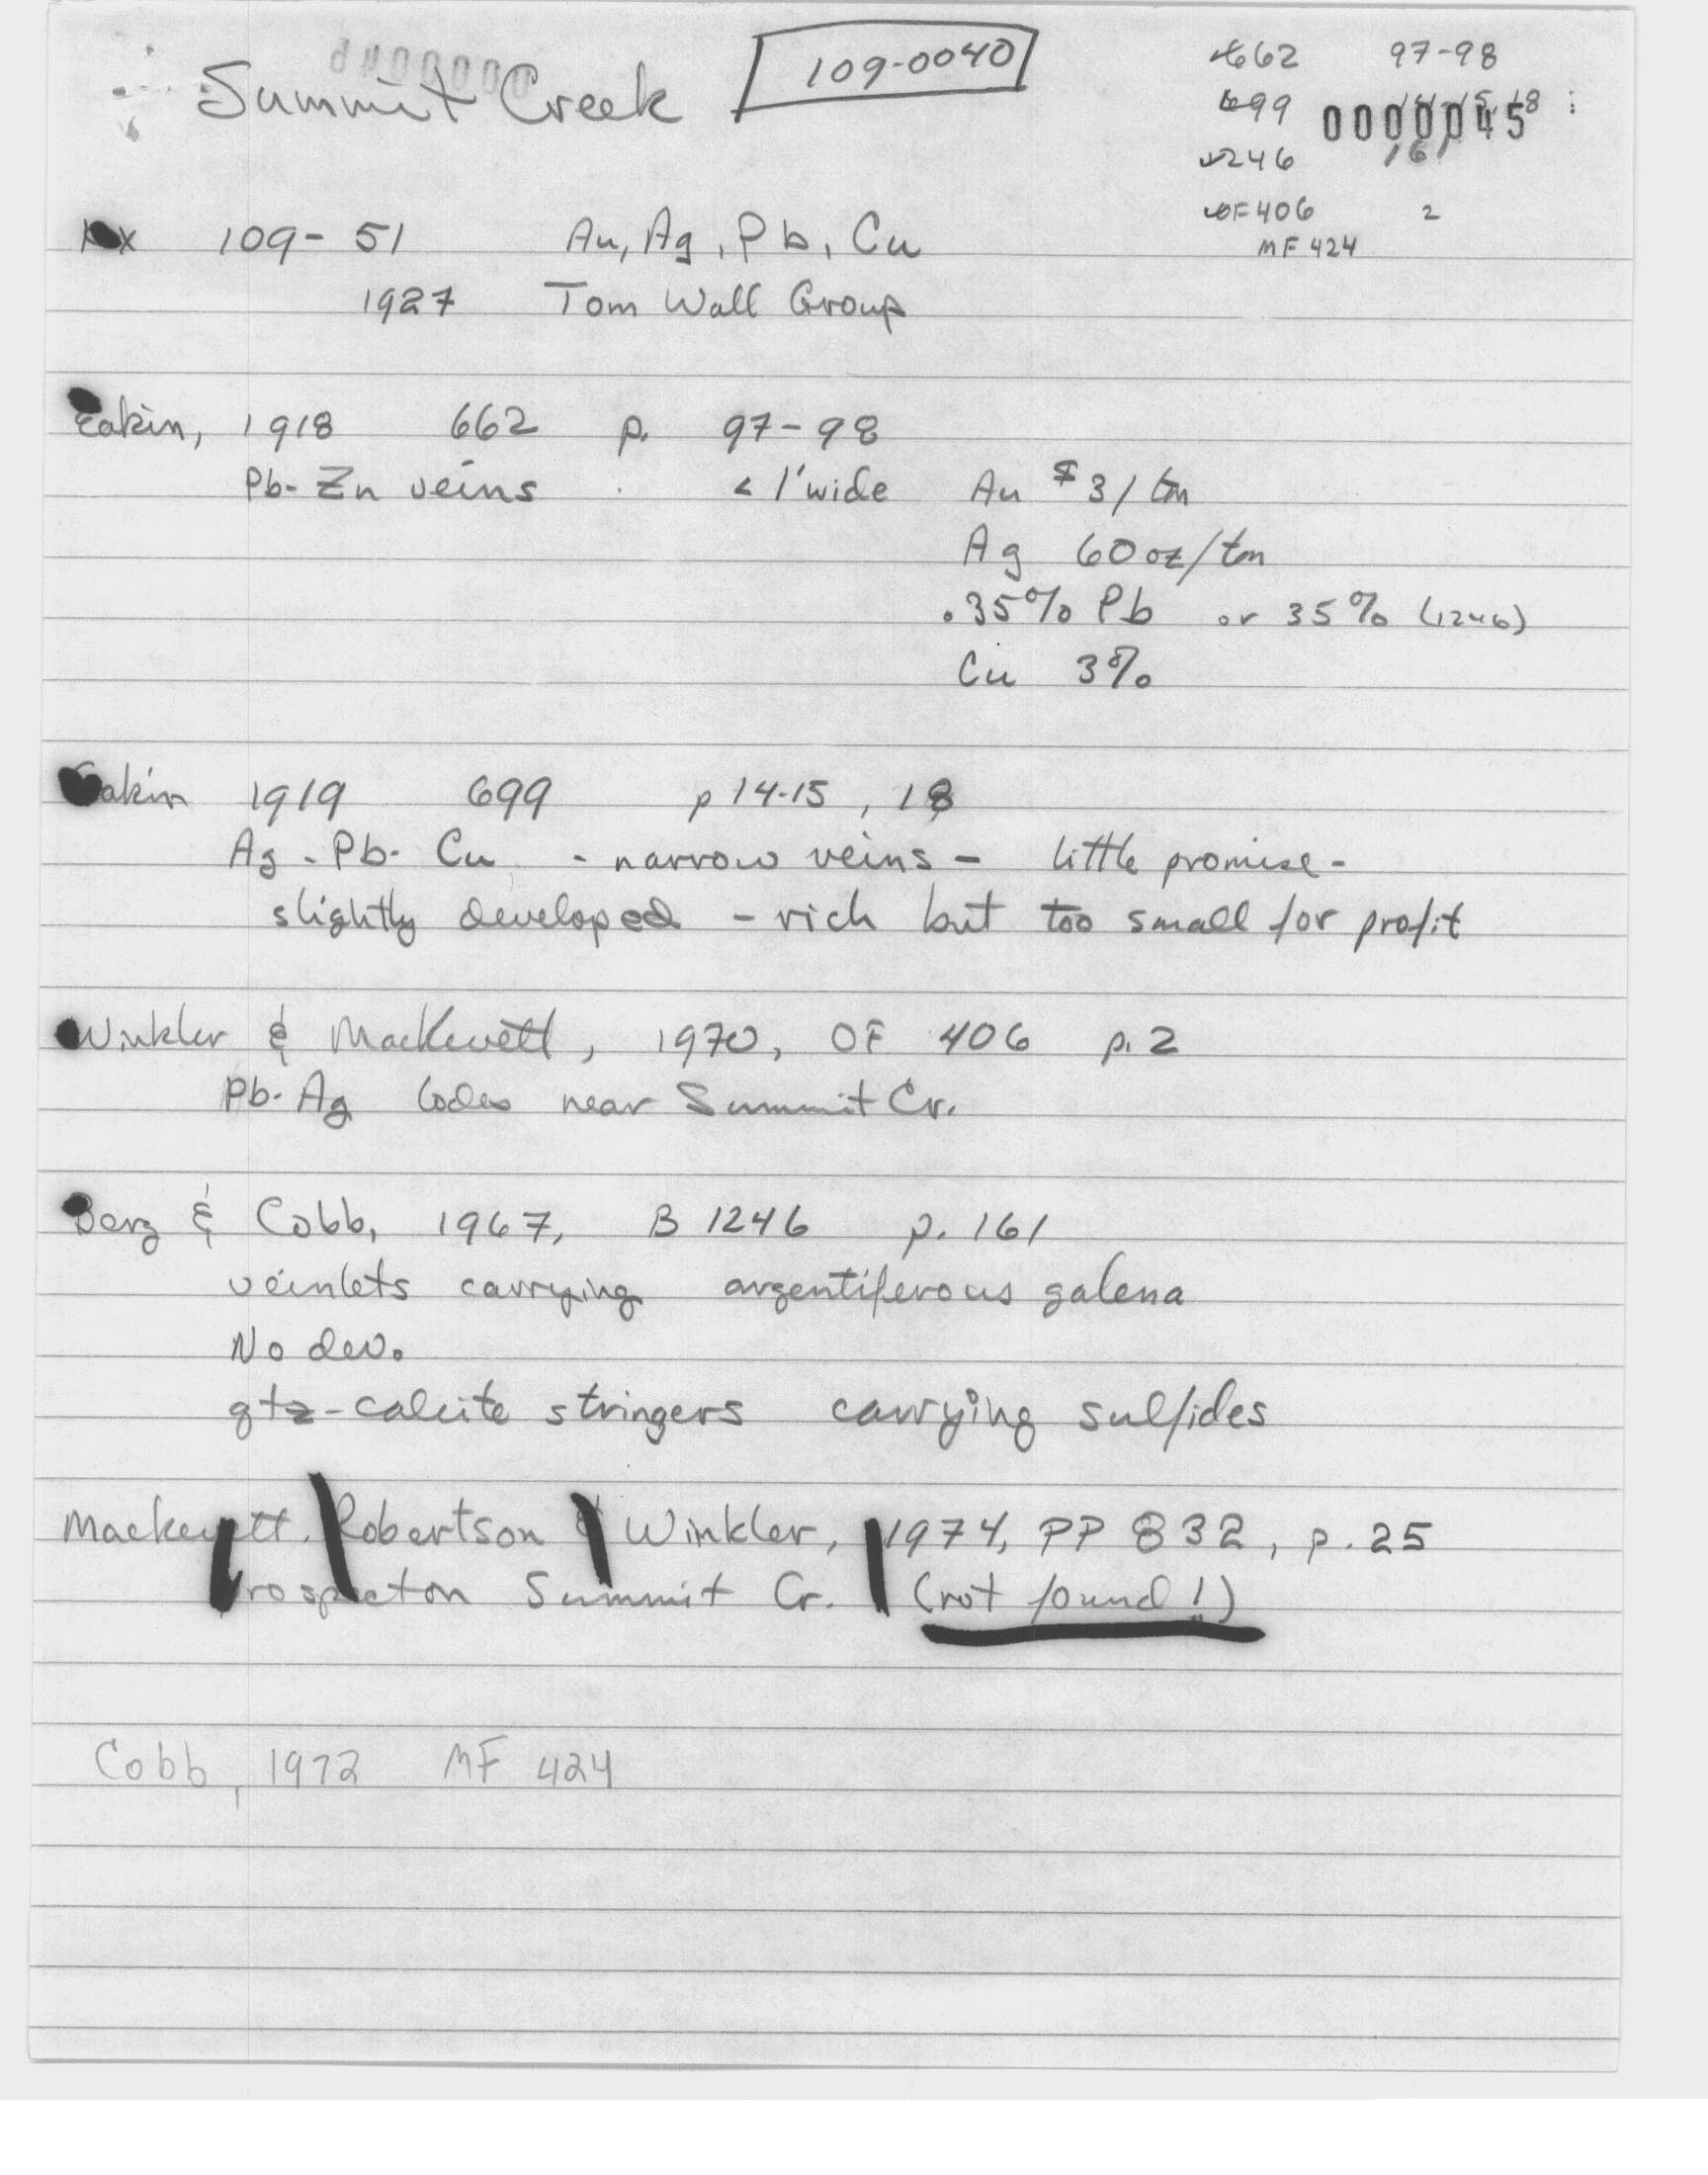 Summit Creek 109-0040
662 97-98
699 14-15, 18
0000045
1246 161
OF 406 2
MF 424
Kx 109-51 Au, Ag, Pb, Cu
1927 Tom Wall Group
Eakin, 1918 662 p. 97-98
Pb-Zn veins < 1' wide Au $3/ton
Ag 60 oz/ton
.35% Pb or 35% (1246)
Cu 3%
Eakin 1919 699 p 14-15, 18
Ag-Pb-Cu - narrow veins - little promise -
slightly developed - rich but too small for profit
Winkler & MacKevett, 1970, OF 406 p. 2
Pb-Ag lodes near Summit Cr.
Berg & Cobb, 1967, B 1246 p. 161
veinlets carrying argentiferous galena
No dev.
qtz-calcite stringers carrying sulfides
Mackevett, Robertson & Winkler, 1974, PP 832, p. 25
Prospect on Summit Cr. (not found!)
Cobb, 1972 MF 424